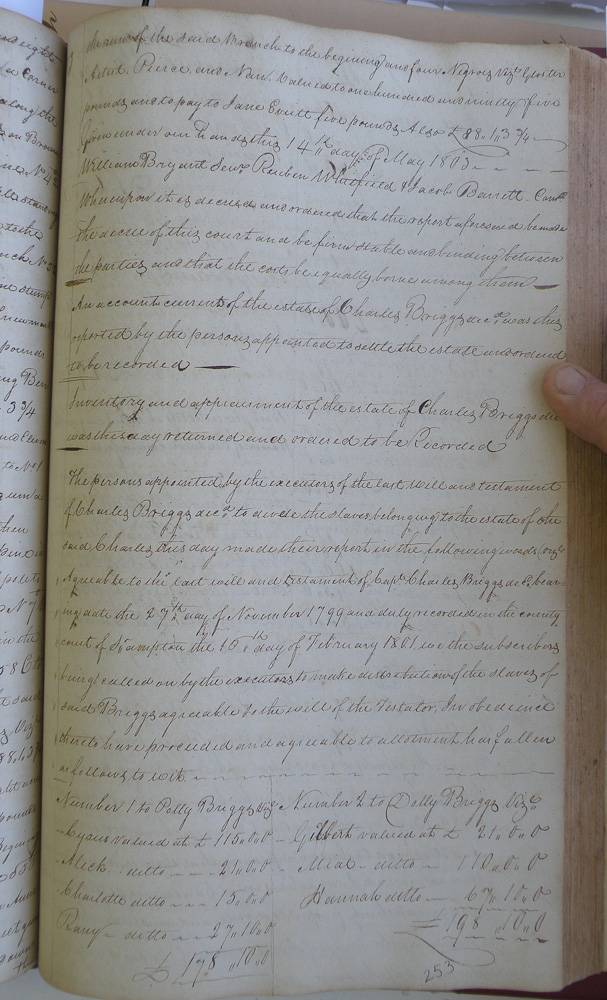 the arm of the said Branch to the begining and four Negroes Vizt
Pierce and Nan. Valued to one hundred and ninety five
pounds and to pay to Jane five pounds Also £88,,1,,3 3/4
Given under our hands this 14th day of May 1803
William Bryant Senr Reuben Whitfield & Jacob Barrett
Whereupon it is decreed and ordered that the report aforesaid be made
the decree of this court and be firm stable and binding between
the parties and that the costs be equally borne among them
An account current of the estate of Charles Briggs decd was this
reported by the persons appointed to settle the estate and ordered
to be recorded
Inventory and appraisment of the estate of Charles Briggs
was this day returned and ordered to be Recorded
The persons appointed by the executors of the last will and testament
of Charles Briggs decd to divide the slaves belonging to the estate of the
said Charles this day made their report in the following words Vizt
Agreable to the last will and testament of Capt Charles Briggs decd bear
ing date the 27th day of November 1799 and duly recorded in the county
court of So ampton the 15th day of February 1801 we the subscribers
being called on by the executors to make distribution of the slaves of
said Briggs agreable to the will of the Testator, In obedience
thereto have proceeded and agreable to allotment has fallen
as follows to wit
Number 1 to Polly Briggs Viz
Cyrus valued at £ 115,,0,,0
Aleck ditto 21,,0,,0
Charlotte ditto 15,,0,,0
ditto 27,,10,,0
£ 178,,10,,0
Number 2 to Dolly Briggs Vizt
Gilbert valued at £ 21,,0,,0
ditto 110,,0,,0
Hannah ditto 67,,10,,0
£ 198,,10,,0
253